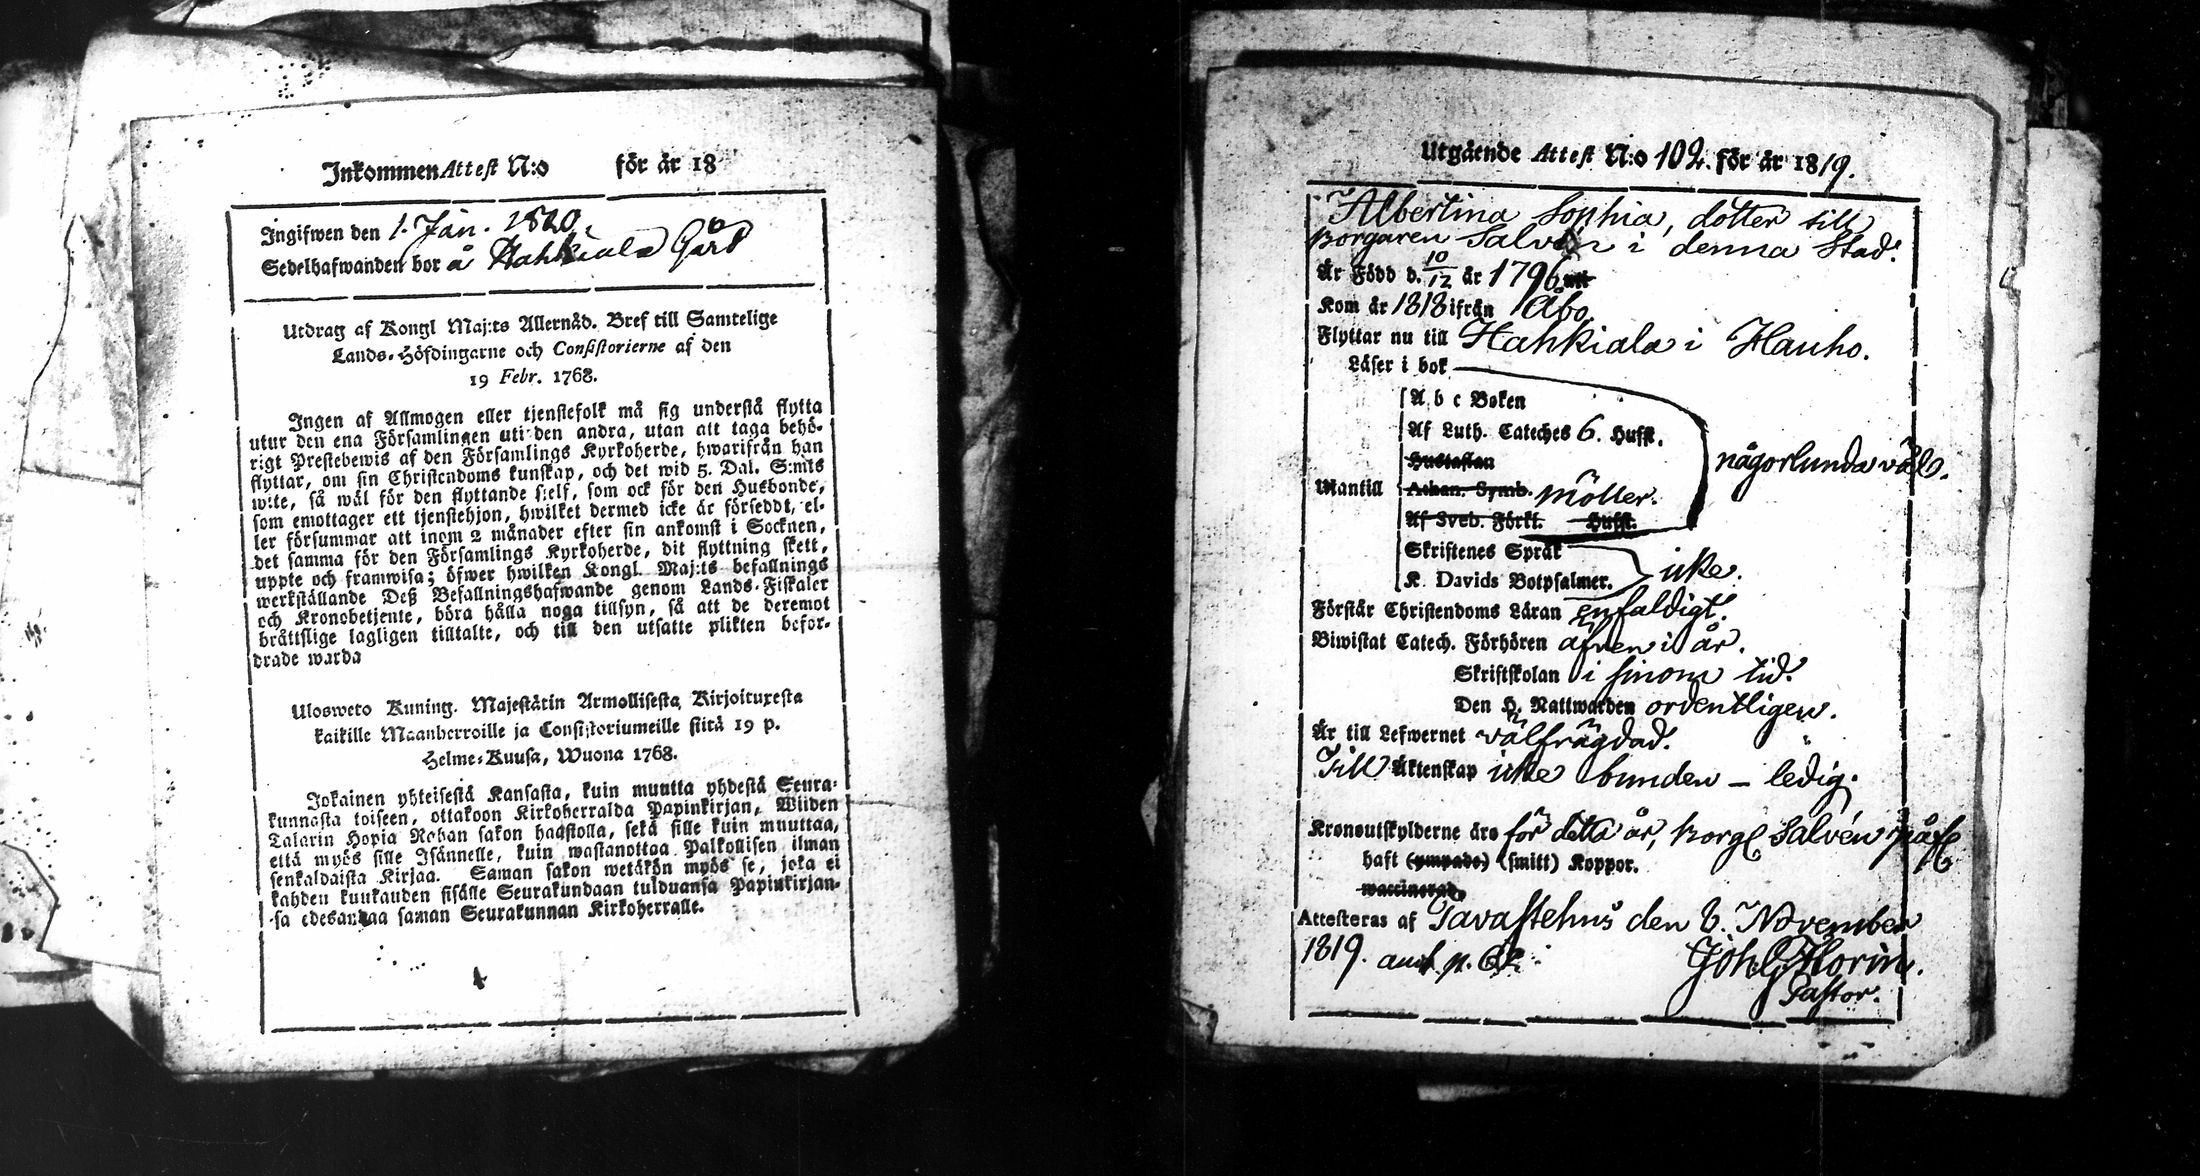 Inkommen Attest N:o för år 18
Ingifwen den 1. Jan. 1820.
Sedelhafwanden bor å Hahkiala Gård
Utdrag af Kongl Maj:ts Allernåd. Bref till Samtelige
Lands-Höfdingarne och Consistorierne af den
19 Febr. 1768.
Ingen af Allmogen eller tjenstefolk må sig understå flytta
utur den ena Församlingen uti den andra, utan att taga behö-
rigt Prestebewis af den Församlings Kyrkoherde, hwarifrån han
flyttar, om sin Christendoms kunskap, och det wid 5. Dal. S:mts
wite, så wäl för den flyttande sielf, som ock för den Husbonde,
som emottager ett tjenstehjon, hwilket dermed icke är förseddt, el-
ler försummar att inom 2 månader efter sin ankomst i Socknen,
det samma för den Församlings Kyrkoherde, dit flyttning skett,
uppte och framwisa; öfwer hwilken Kongl. Maj:ts befallnings
werkställande Deß Befallningshafwande genom Lands-Fiskaler
och Kronobetjente, böra hålla noga tillsyn, så att de deremot
bråttslige lagligen tilltalte, och till den utsatte plikten befor-
drade warda
Ulosweto Kuning. Majestätin Armollisesta Kirjoituxesta
kaikille Maanherroille ja Consistoriumeille siitä 19 p.
Helme-Kuusa, Wuona 1768.
Jokainen yhteisestä Kansasta, kuin muutta yhdestä Seura-
kunnasta toiseen, ottakoon Kirkoherralda Papinkirjan, Wiiden
Talarin Hopia Rahan sakon haastolla, sekä sille kuin muuttaa,
että myös sille Isännelle, kuin wastanottaa Palkollisen ilman
senkaldaista Kirjaa. Saman sakon wetäkön myös se, joka ei
kahden kuukauden sisälle Seurakundaan tulduansa Papinkirjan-
sa edesandaa saman Seurakunnan Kirkoherralle.
Utgående Attest N:o 102. för år 1819.
Albertina Sophia, dotter till
Borgaren Salvén i denna Stad.
Är Född d. 10/12 år 1796
Kom år 1818 ifrån Åbo
Flyttar nu till Hahkiala i Hauho.
Läser i bok
A b c Boken
Af Luth. Cateches 6. Hufst.
Hustaflan
någorlunda väl.
Utantill Athan. Symb. Möller.
Af Sveb. Förkl. Hufst.
Skriftenes Språk
icke.
K. Davids Botpsalmer.
Förstår Christendoms Läran enfaldigt.
Biwistat Catech. Förhören äfven i år.
Skriftskolan i sinom tid.
Den H. Nattwarden ordentligen.
Är till Lefwernet välfrägdad.
Till Äktenskap icke bunden – ledig.
Kronoutskylderne äro för detta år, Borg Salvén påf
haft (ympade) (smitt) Koppor.
waccinerad
Attesteras af Tavastehus den 6. November
1819.
Joh. G. Florin.
Pastor.